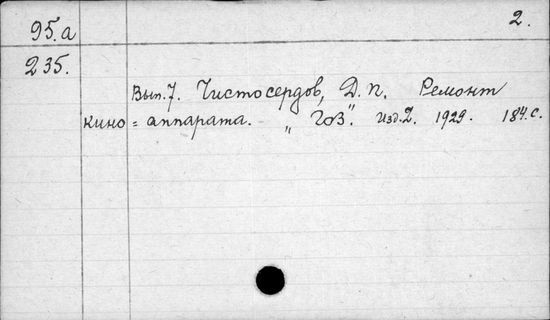 95.а 2.
235.
Вып.7. Чистосердов, Д.П. Ремонт
кино=аппарата. „ГОЗ". изд.2. 1929. 184.с.